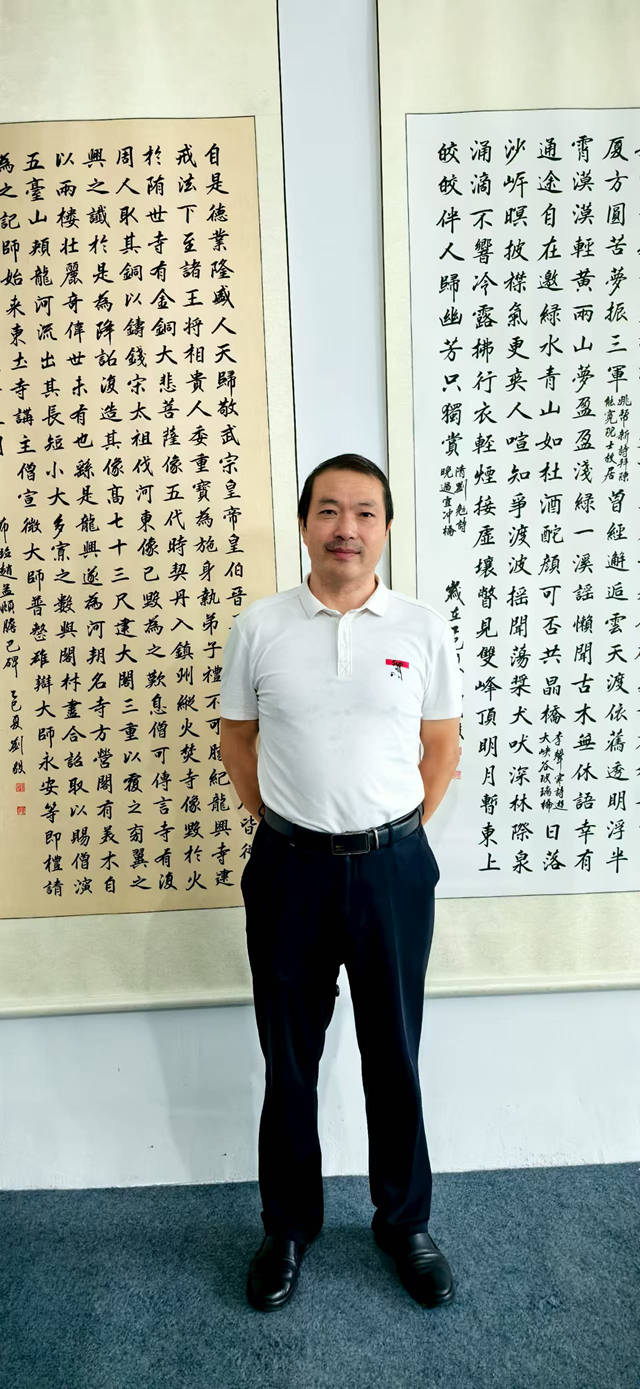 自是德業隆盛人天歸敬武宗皇帝皇伯晉
人皆
戒法下至諸王將相貴人委重寶為施身執弟子禮不可勝紀龍興寺建
於隋世寺有金銅大悲菩薩像五代時契丹入鎮州縱火焚寺像毀於火
周人取其銅以鑄錢宋太祖伐河東像已毀為之歎息僧可傳言寺有復
興之讖於是為降詔復造其像高七十三尺建大閣三重以覆之旁翼之
以兩樓壯麗奇偉世未有也繇是龍興遂為河朔名寺方營閣有美木自
五臺山頰龍河流出其長短小大多寡之數與閣林盡合詔取以賜僧演
為之記師始来東土寺講主僧宣微大師普整雄辯大師永安等即禮請
趙孟頫膽巴碑 乙巳夏劉敬
厦方圓苦夢振三軍
姚幫新詩拜陳
能寬院士故居
曾經邂逅雲天渡依舊透明浮半
霄漠漠輕黃雨山夢盈盈淺綠一溪謠懶聞古木無休語幸有
通途自在邀綠水青山如杜酒酡顏可否共晶橋
李聲來詩遊
大峽谷玻璃橋
日落
沙岍暝披襟氣更爽人喧知爭渡波搖聞蕩槳犬吠深林際泉
涌滴不響冷露拂行衣輕煙接虛壤瞥見雙峰頂明月暫東上
皎皎伴人歸幽芳只獨賞
清劉勉詩
晚過雲沖橋
歲在乙巳